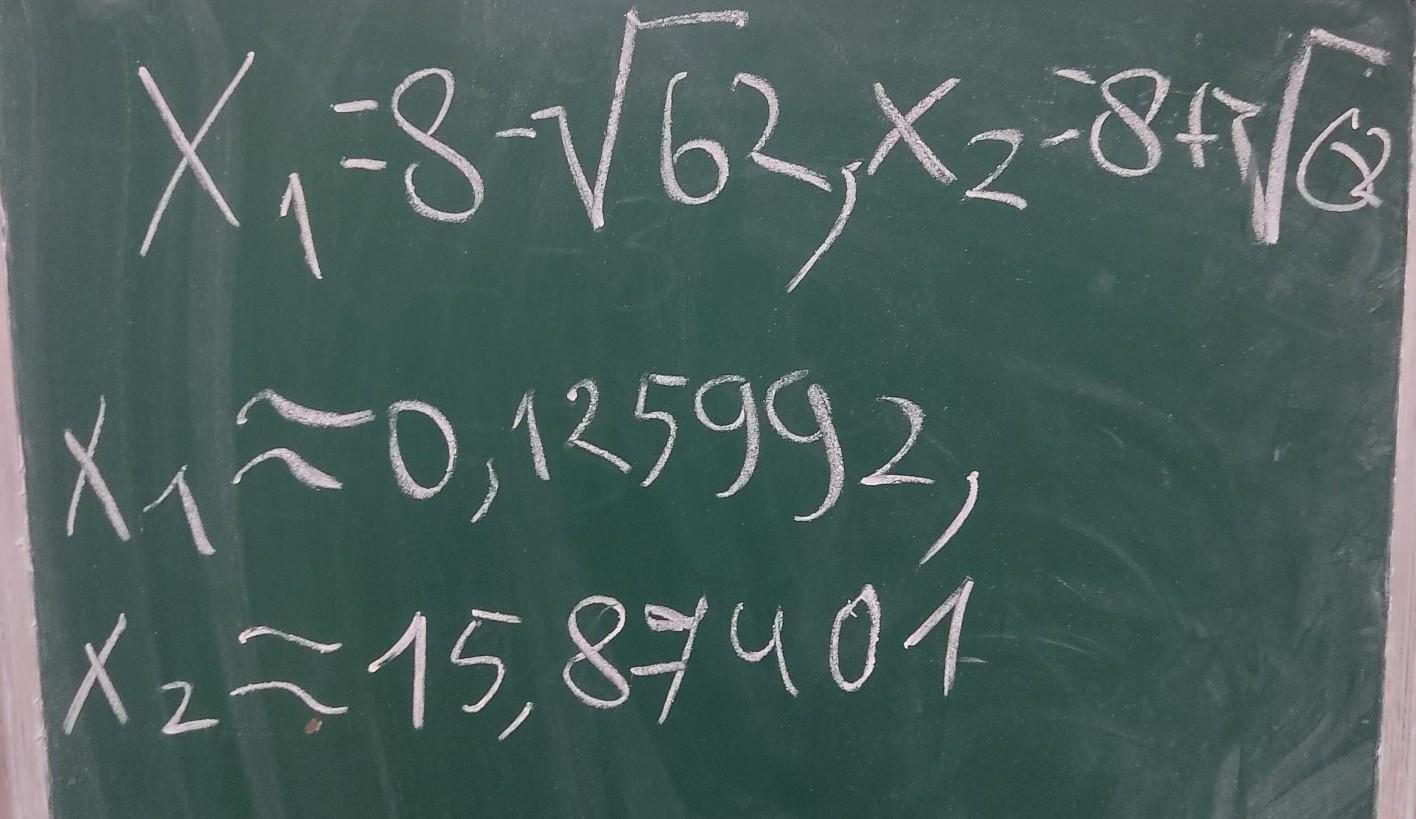 X₁=8-√62, x₂=8+√62
x₁≈0,125992,
x₂≈15,87401